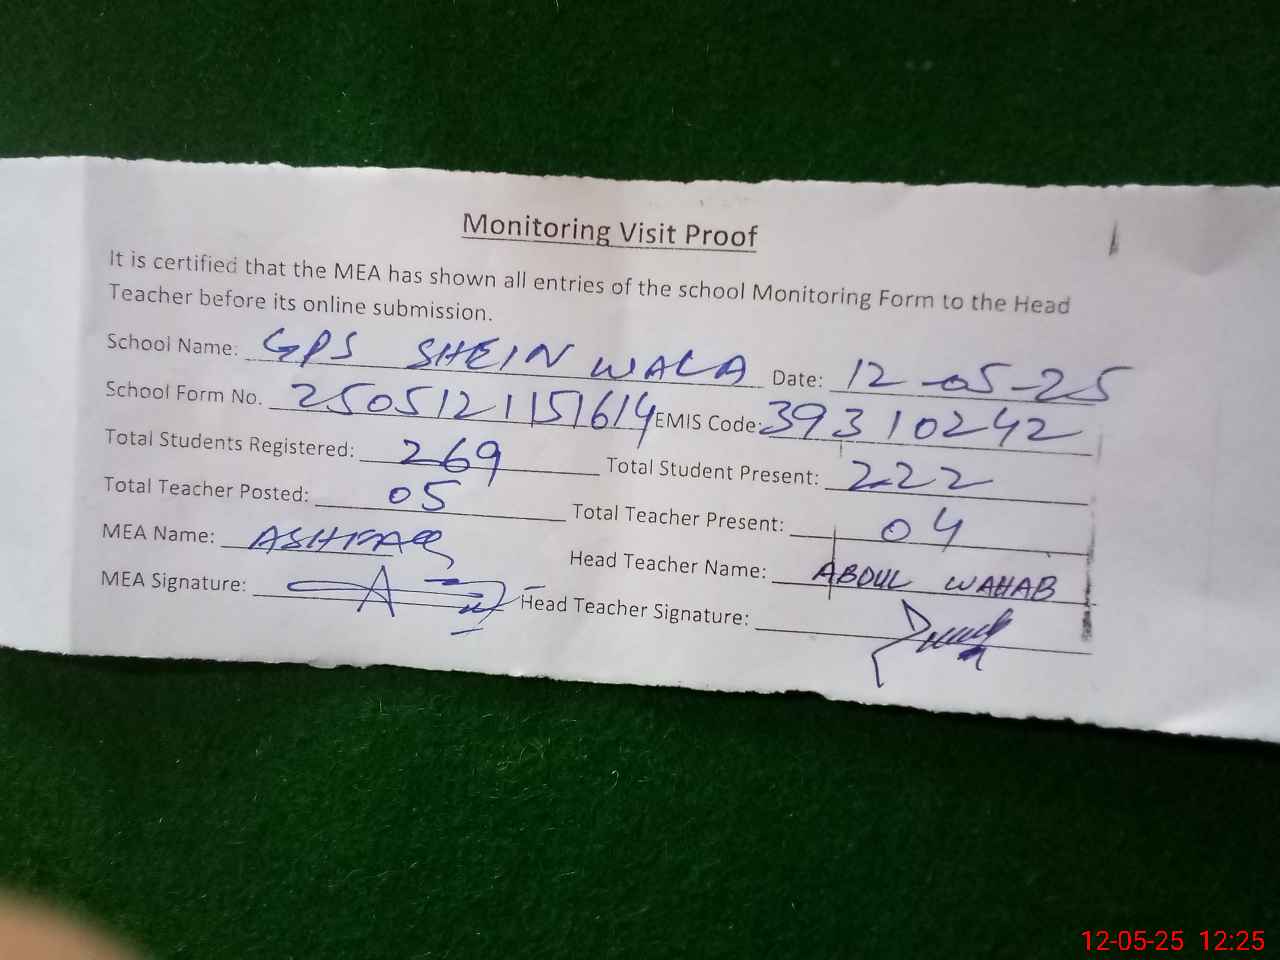 Monitoring Visit Proof
It is certified that the MEA has shown all entries of the school Monitoring Form to the Head
Teacher before its online submission.
School Name: GPS SHEIN WALA Date: 12-05-25
School Form No. 2505121151614 EMIS Code: 39310242
Total Students Registered: 269 Total Student Present: 222
Total Teacher Posted: 05 Total Teacher Present: 04
MEA Name: ASHFAQ Head Teacher Name: ABDUL WAHAB
MEA Signature: Head Teacher Signature:
12-05-25 12:25